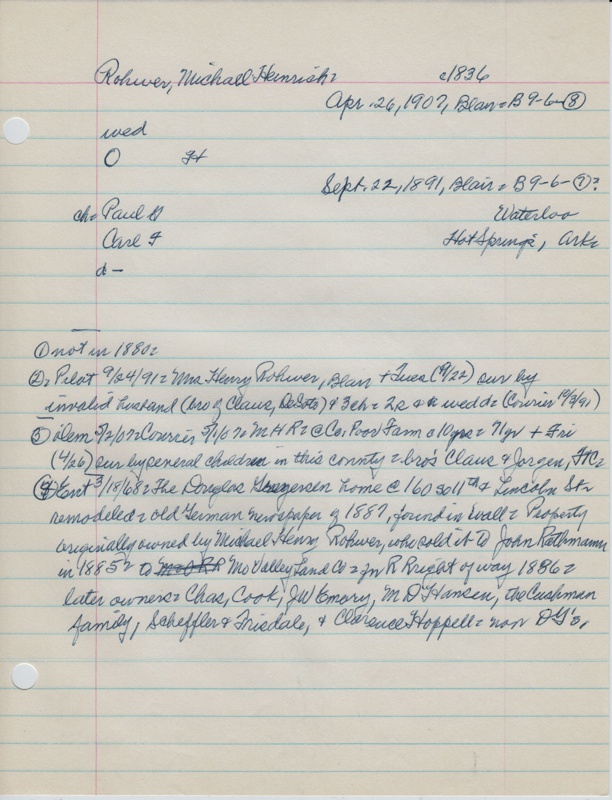 Rohwer, Michael Heinrich = c1836
Apr. 26, 1907, Blair = B9-6-⑧
wed
O H
Sept. 22, 1891, Blair = B9-6-⑦?
ch = Paul Waterloo
Carl F Hot Springs, Ark
d —
① not in 1880 =
② Pilot 9/24/91 = Mrs Henry Rohwer, Blair + Tues (9/22) sur by
invalid husband (bro of Claus, DeSoto) & 3 ch = 2s & wed d = (Courier 10/3/91)
③ Dem 5/2/07 = Courier = MHR = @ Co. Poor Farm c10 yrs = 71 yr + Fri
(4/26) sur by several children in this county = bros Claus & Jorgen,
④ Ent 3/18/68 = The Douglas home @ 160 So 11th & Lincoln St =
remodeled = old German newspaper of 1887, found in wall = Property
originally owned by Michael Henry Rohwer, who sold it to John Rathmann
in 1885 = to Mo Valley Land Co = for RR right of way 1886 =
later owners = Chas, Cook, JW Emory, M D Hansen, the Cushman
family, Scheffler & Trisdale, & Clarence Hoppell = non DG's.